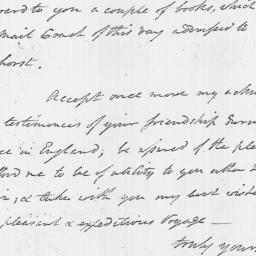 to you a couple of books, which
Mail Coach of this day addressed to
horst.
Accept once more my ackn
testimonies of your friendship dur
ce in England; be assured of the plea
ford me to be of utility to you
& take with you my best wishe
pleasant & expeditious Voyage —
truly yours